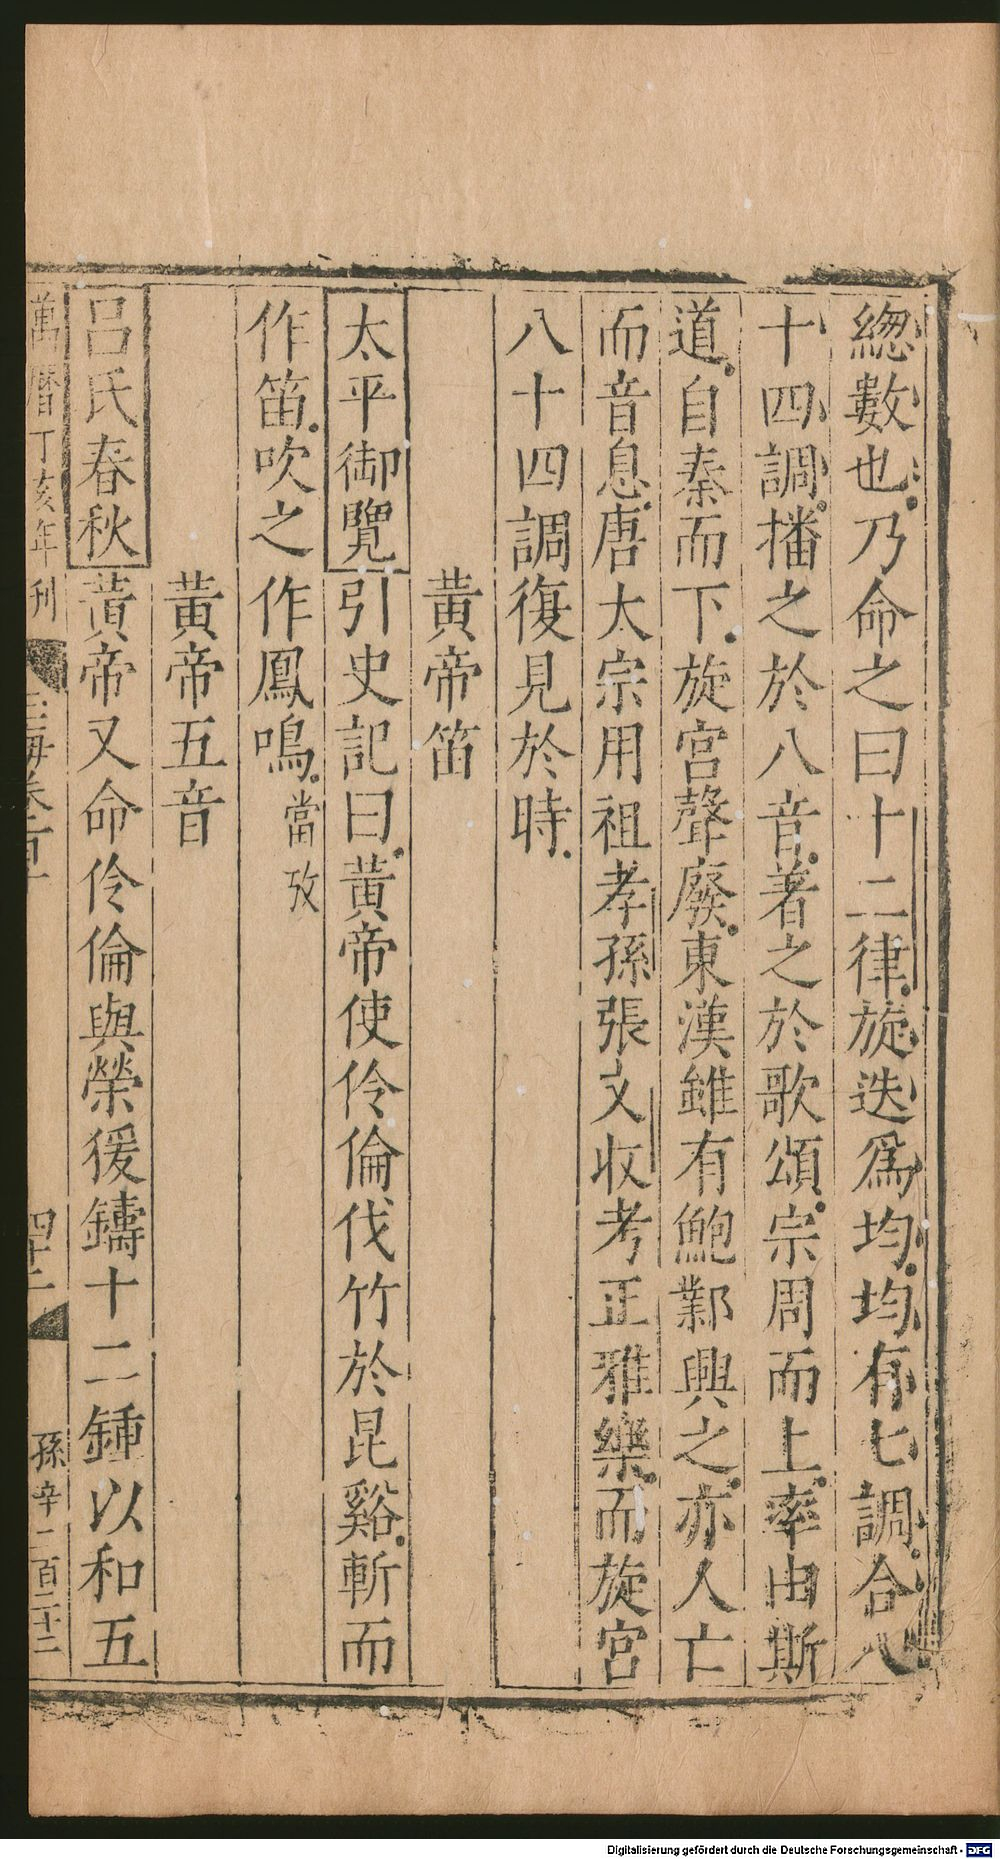 總數也乃命之曰十二律旋迭爲均均有七調合八
十四調播之於八音著之於歌頌宗周而上率由斯
道自秦而下旋宮聲廢東漢雖有鮑鄴興之亦人亡
而音息唐太宗用祖孝孫張文收考正雅樂而旋宮
八十四調復見於時
黄帝笛
太平御覽引史記曰黄帝使伶倫伐竹於昆谿斬而
作笛吹之作鳳鳴當攷
黄帝五音
吕氏春秋黄帝又命伶倫與榮猨鑄十二鍾以和五
萬曆丁亥年刊 玉海卷百十 四十二 孫辛二百二十二
Digitalisierung gefördert durch die Deutsche Forschungsgemeinschaft - DFG